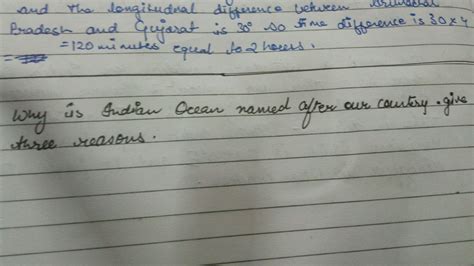 and the longitudnal difference between Arunachal
Pradesh and Gujarat is 30° so time difference is 30 x 4
= 120 minutes equal to 2 hours.
Why is Indian Ocean named after our country . give
three reasons .